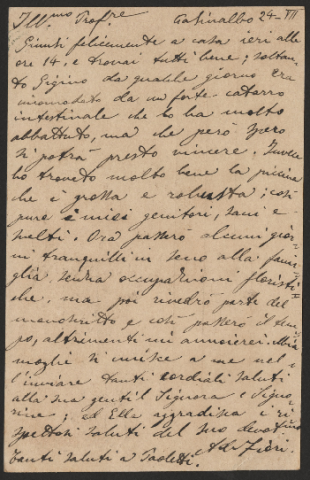 Ill.mo Prof.re Casinalbo 24-XII
Giunsi felicemente a casa ieri alle
ore 14, e trovai tutti bene; soltan-
to Gigino da qualche giorno era
incomodato da un forte catarro
intestinale che lo ha molto
abbattuto, ma che però spero
si potrà presto vincere. Invece
ho trovato molto bene la piccina
che è grossa e robusta; così
pure i miei genitori, sani e
svelti. Ora passerò alcuni gior-
ni tranquilli in seno alla fami-
glia, senza occupazioni floristi-
che, ma poi rivedrò parte del
manoscritto e così passerò il tem-
po, altrimenti mi annoierei. Mia
moglie si unisce a me nel-
l'inviare tanti cordiali saluti
alla sua gentil Signora e Signo-
rine; ed Ella aggradisca i ri-
spettosi saluti del suo devotissimo
Tanti saluti a Paoletti. Adr. Fiori.